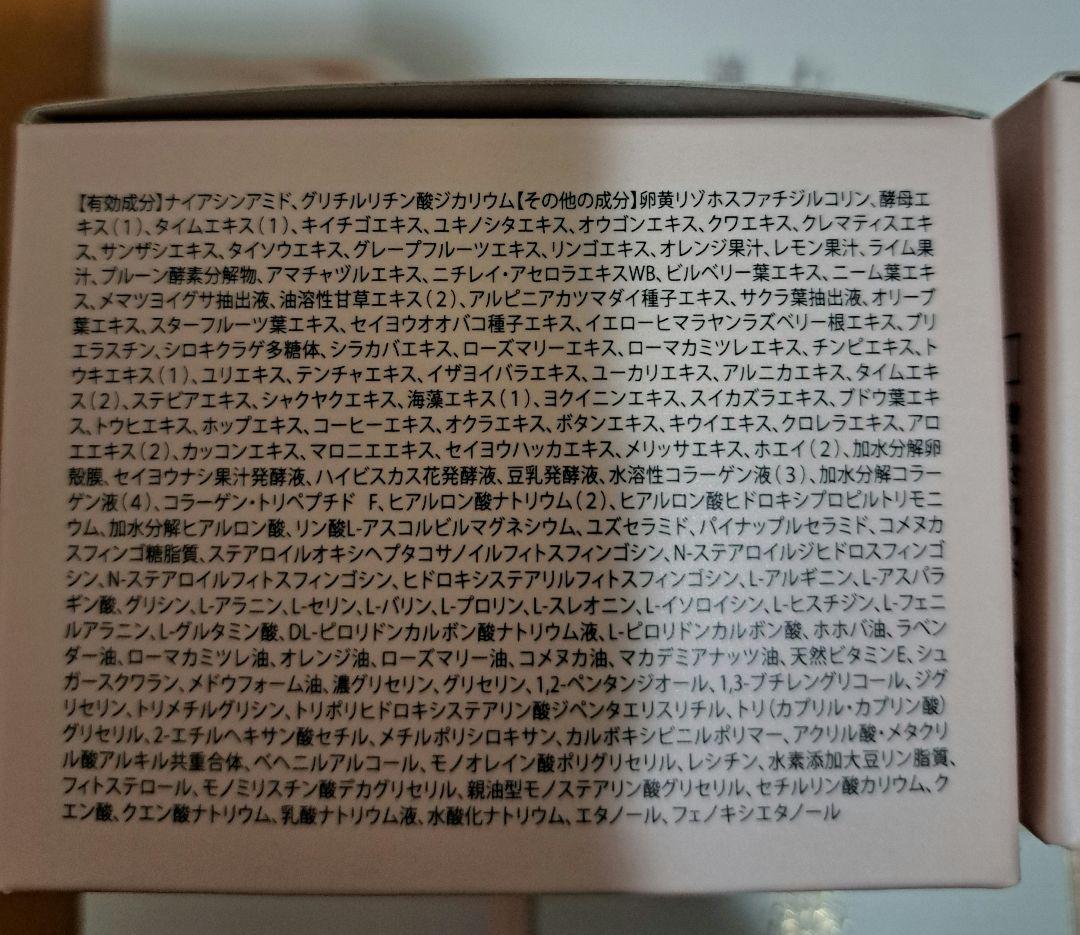 【有効成分】ナイアシンアミド、グリチルリチン酸ジカリウム【その他の成分】卵黄リゾホスファチジルコリン、酵母エ
キス(1)、タイムエキス(1)、キイチゴエキス、ユキノシタエキス、オウゴンエキス、クワエキス、クレマティスエキ
ス、サンザシエキス、タイソウエキス、グレープフルーツエキス、リンゴエキス、オレンジ果汁、レモン果汁、ライム果
汁、プルーン酵素分解物、アマチャヅルエキス、ニチレイ・アセロラエキスWB、ビルベリー葉エキス、ニーム葉エキ
ス、メマツヨイグサ抽出液、油溶性甘草エキス(2)、アルピニアカツマダイ種子エキス、サクラ葉抽出液、オリーブ
葉エキス、スターフルーツ葉エキス、セイヨウオオバコ種子エキス、イエローヒマラヤンラズベリー根エキス、プリ
エラスチン、シロキクラゲ多糖体、シラカバエキス、ローズマリーエキス、ローマカミツレエキス、チンピエキス、ト
ウキエキス(1)、ユリエキス、テンチャエキス、イザヨイバラエキス、ユーカリエキス、アルニカエキス、タイムエキ
ス(2)、ステビアエキス、シャクヤクエキス、海藻エキス(1)、ヨクイニンエキス、スイカズラエキス、ブドウ葉エキ
ス、トウヒエキス、ホップエキス、コーヒーエキス、オクラエキス、ボタンエキス、キウイエキス、クロレラエキス、アロ
エエキス(2)、カッコンエキス、マロニエエキス、セイヨウハッカエキス、メリッサエキス、ホエイ(2)、加水分解卵
殻膜、セイヨウナシ果汁発酵液、ハイビスカス花発酵液、豆乳発酵液、水溶性コラーゲン液(3)、加水分解コラー
ゲン液(4)、コラーゲン・トリペプチド F、ヒアルロン酸ナトリウム(2)、ヒアルロン酸ヒドロキシプロピルトリモニ
ウム、加水分解ヒアルロン酸、リン酸L-アスコルビルマグネシウム、ユズセラミド、パイナップルセラミド、コメヌカ
スフィンゴ糖脂質、ステアロイルオキシヘプタコサノイルフィトスフィンゴシン、N-ステアロイルジヒドロスフィンゴ
シン、N-ステアロイルフィトスフィンゴシン、ヒドロキシステアリルフィトスフィンゴシン、L-アルギニン、L-アスパラ
ギン酸、グリシン、L-アラニン、L-セリン、L-バリン、L-プロリン、L-スレオニン、L-イソロイシン、L-ヒスチジン、L-フェニ
ルアラニン、L-グルタミン酸、DL-ピロリドンカルボン酸ナトリウム液、L-ピロリドンカルボン酸、ホホバ油、ラベン
ダー油、ローマカミツレ油、オレンジ油、ローズマリー油、コメヌカ油、マカデミアナッツ油、天然ビタミンE、シュ
ガースクワラン、メドウフォーム油、濃グリセリン、グリセリン、1,2-ペンタンジオール、1,3-ブチレングリコール、ジグ
リセリン、トリメチルグリシン、トリポリヒドロキシステアリン酸ジペンタエリスリチル、トリ(カプリル・カプリン酸)
グリセリル、2-エチルヘキサン酸セチル、メチルポリシロキサン、カルボキシビニルポリマー、アクリル酸・メタクリ
ル酸アルキル共重合体、ベヘニルアルコール、モノオレイン酸ポリグリセリル、レシチン、水素添加大豆リン脂質、
フィトステロール、モノミリスチン酸デカグリセリル、親油型モノステアリン酸グリセリル、セチルリン酸カリウム、ク
エン酸、クエン酸ナトリウム、乳酸ナトリウム液、水酸化ナトリウム、エタノール、フェノキシエタノール